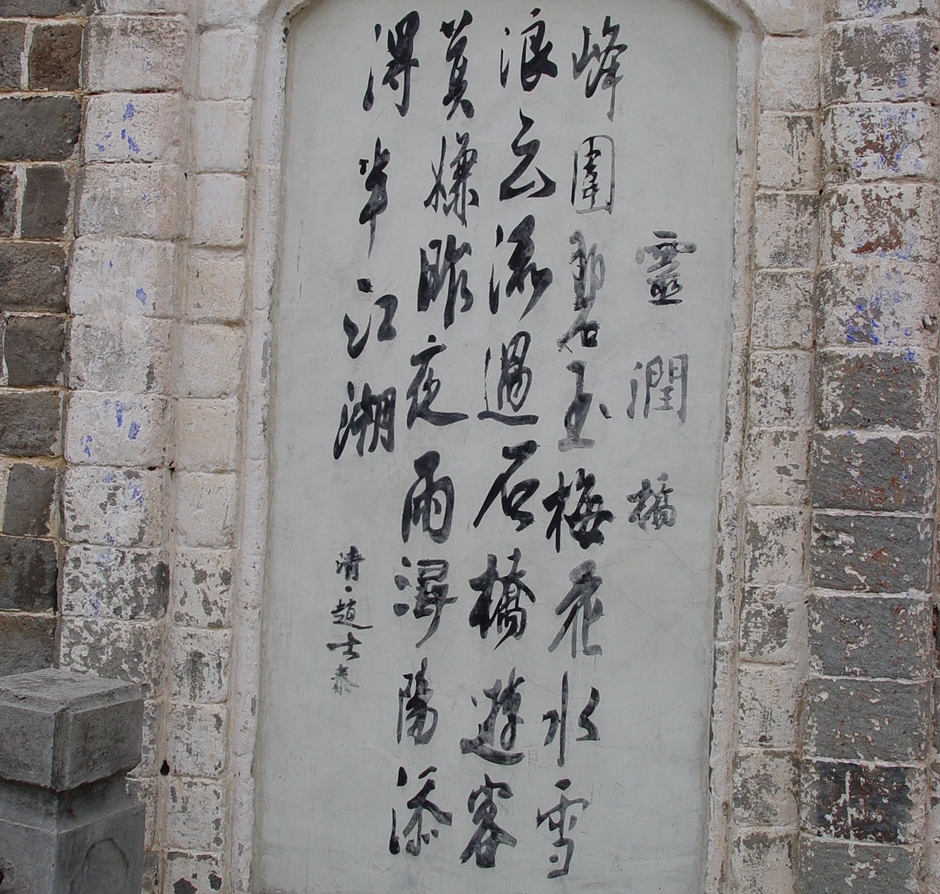 靈潤橋
峰圍碧玉梅花水雪
浪云流過石橋遊客
莫嫌昨夜雨潯陽添
得半江湖
清·趙士泰